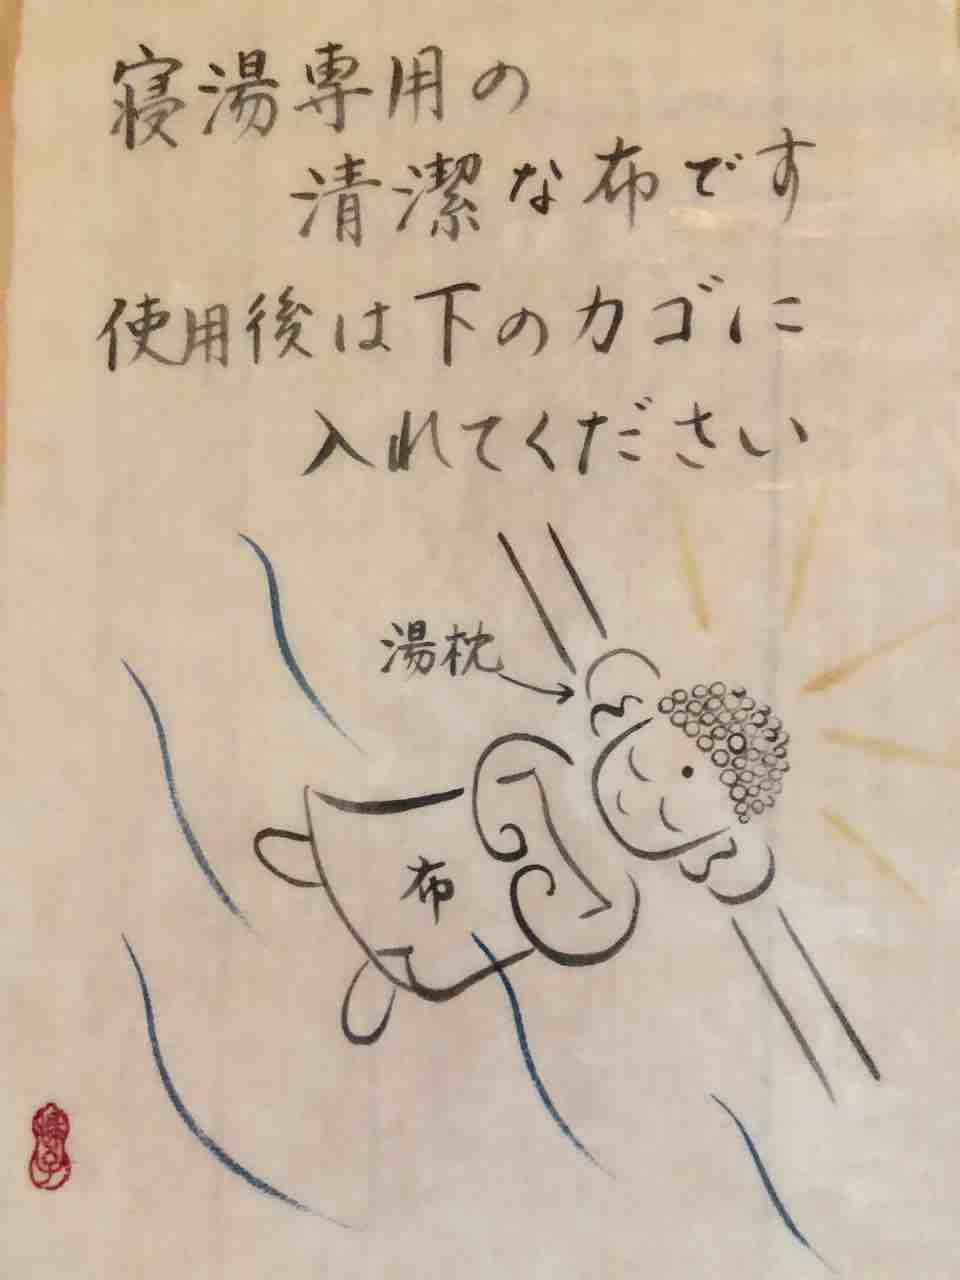 寝湯専用の
清潔な布です
使用後は下のカゴに
入れてください
湯枕
布